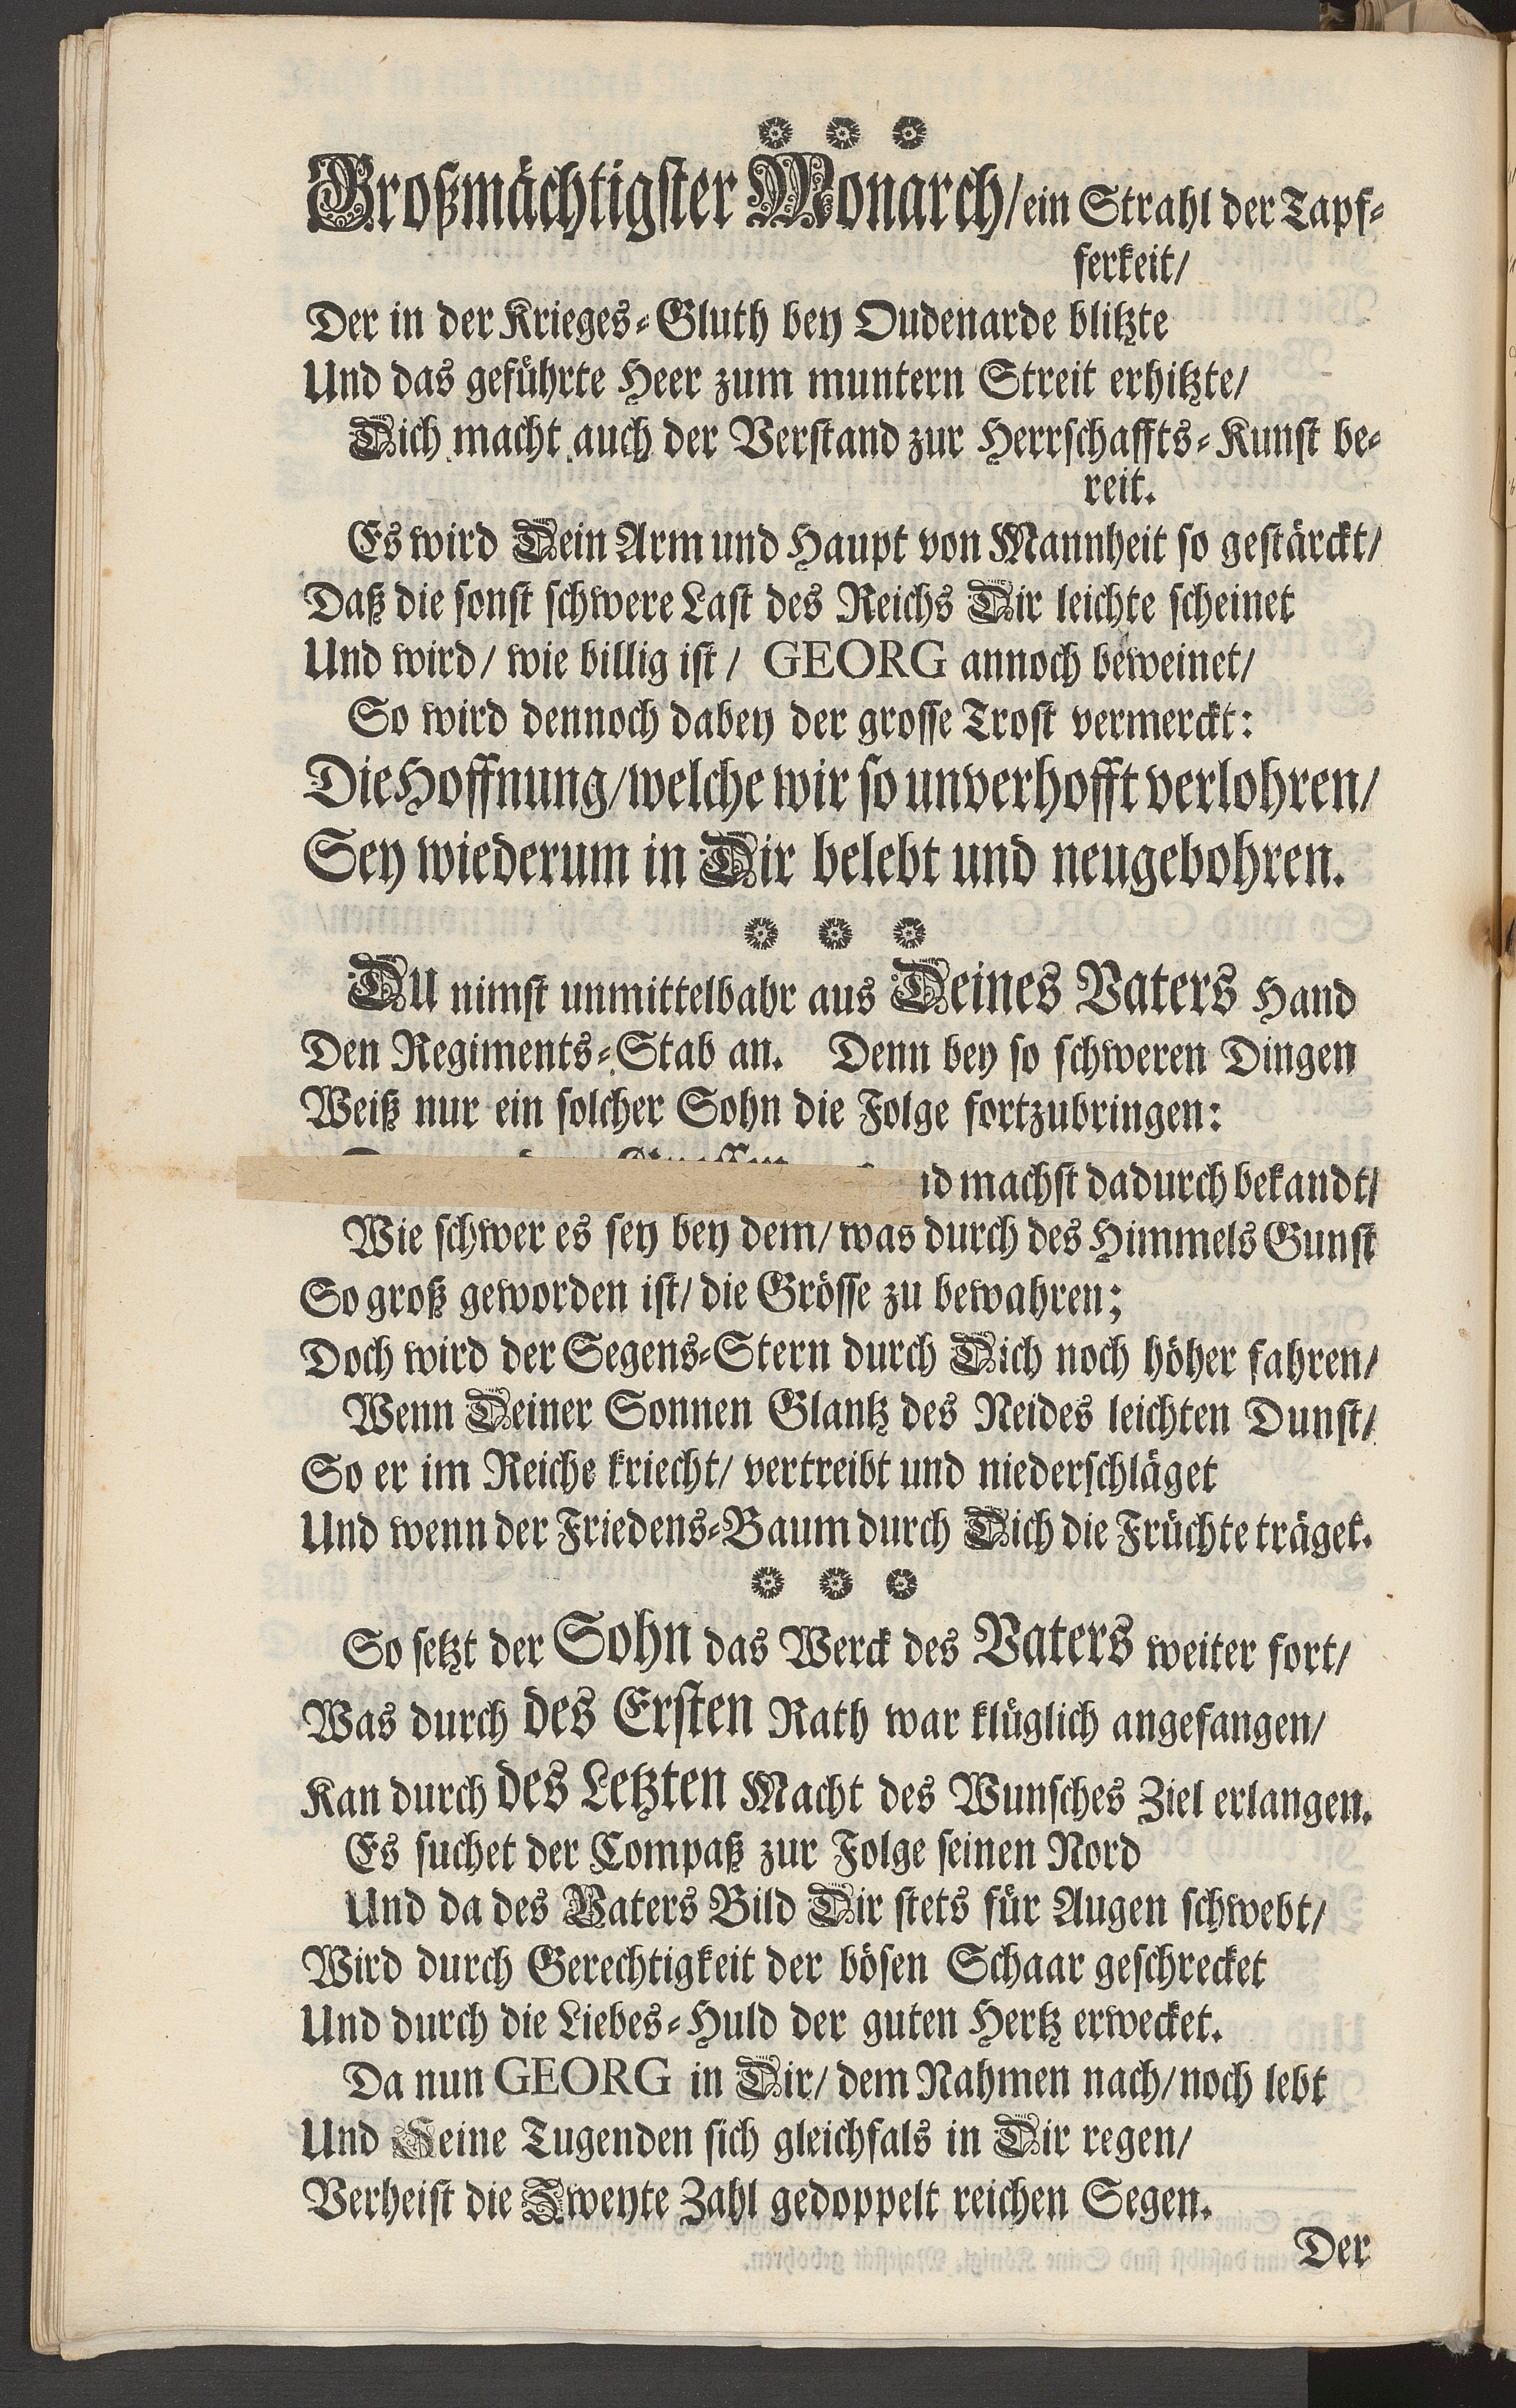 Großmächtigster Monarch/ ein Strahl der Tapf-
ferkeit/
Der in der Krieges-Gluth bey Oudenarde blitzte
Und das geführte Heer zum muntern Streit erhitzte/
Dich macht auch der Verstand zur Herrschaffts-Kunst be-
reit.
Es wird Dein Arm und Haupt von Mannheit so gestärckt/
Daß die sonst schwere Last des Reichs Dir leichte scheinet
Und wird/ wie billig ist/ GEORG annoch beweinet/
So wird dennoch dabey der grosse Trost vermerckt:
Die Hoffnung/ welche wir so unverhofft verlohren/
Sey wiederum in Dir belebt und neugebohren.
Du nimst unmittelbahr aus Deines Vaters Hand
Den Regiments-Stab an. Denn bey so schweren Dingen
Weiß nur ein solcher Sohn die Folge fortzubringen:
machst dadurch bekandt/
Wie schwer es sey bey dem/ was durch des Himmels Gunst
So groß geworden ist/ die Grösse zu bewahren;
Doch wird der Segens-Stern durch Dich noch höher fahren/
Wenn Deiner Sonnen Glantz des Neides leichten Dunst/
So er im Reiche kriecht/ vertreibt und niederschläget
Und wenn der Friedens-Baum durch Dich die Früchte träget.
So setzt der Sohn das Werck des Vaters weiter fort/
Was durch des Ersten Rath war klüglich angefangen/
Kan durch des Letzten Macht des Wunsches Ziel erlangen.
Es suchet der Compaß zur Folge seinen Nord
Und da des Vaters Bild Dir stets für Augen schwebt/
Wird durch Gerechtigkeit der bösen Schaar geschrecket
Und durch die Liebes-Huld der guten Hertz erwecket.
Da nun GEORG in Dir/ dem Nahmen nach/ noch lebt
Und Seine Tugenden sich gleichfals in Dir regen/
Verheist die Zweyte Zahl gedoppelt reichen Segen.
Der